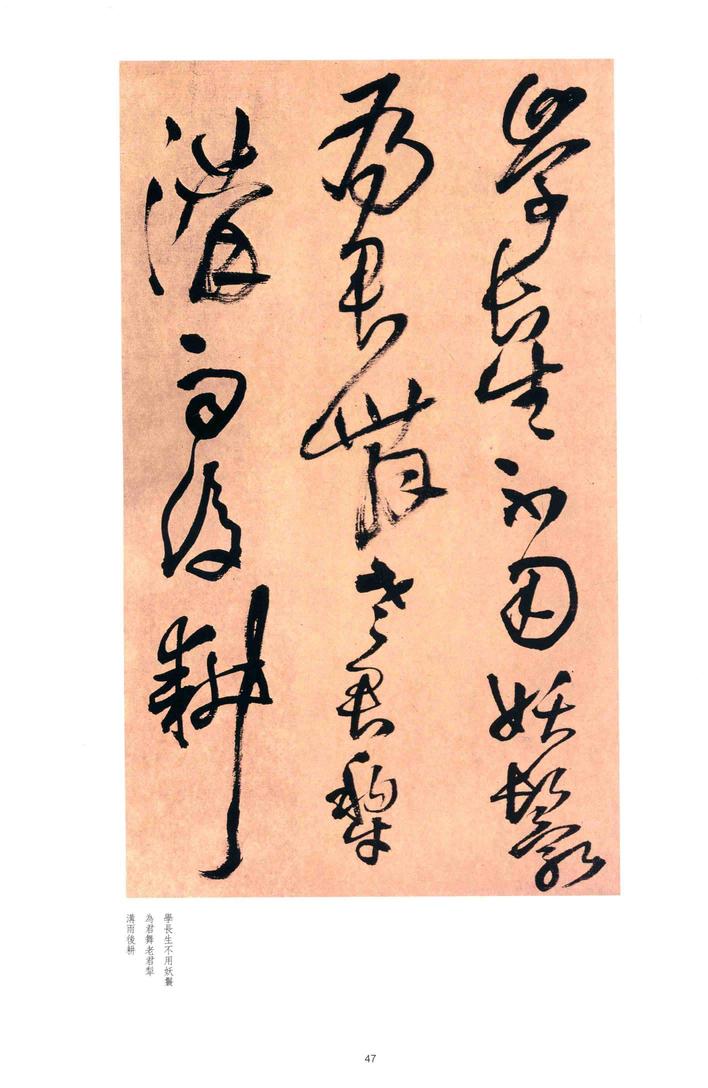 學長生不用妖鬟
為君舞老君犁
溝雨後耕
學長生不用妖鬟
為君舞老君犁
溝雨後耕
47